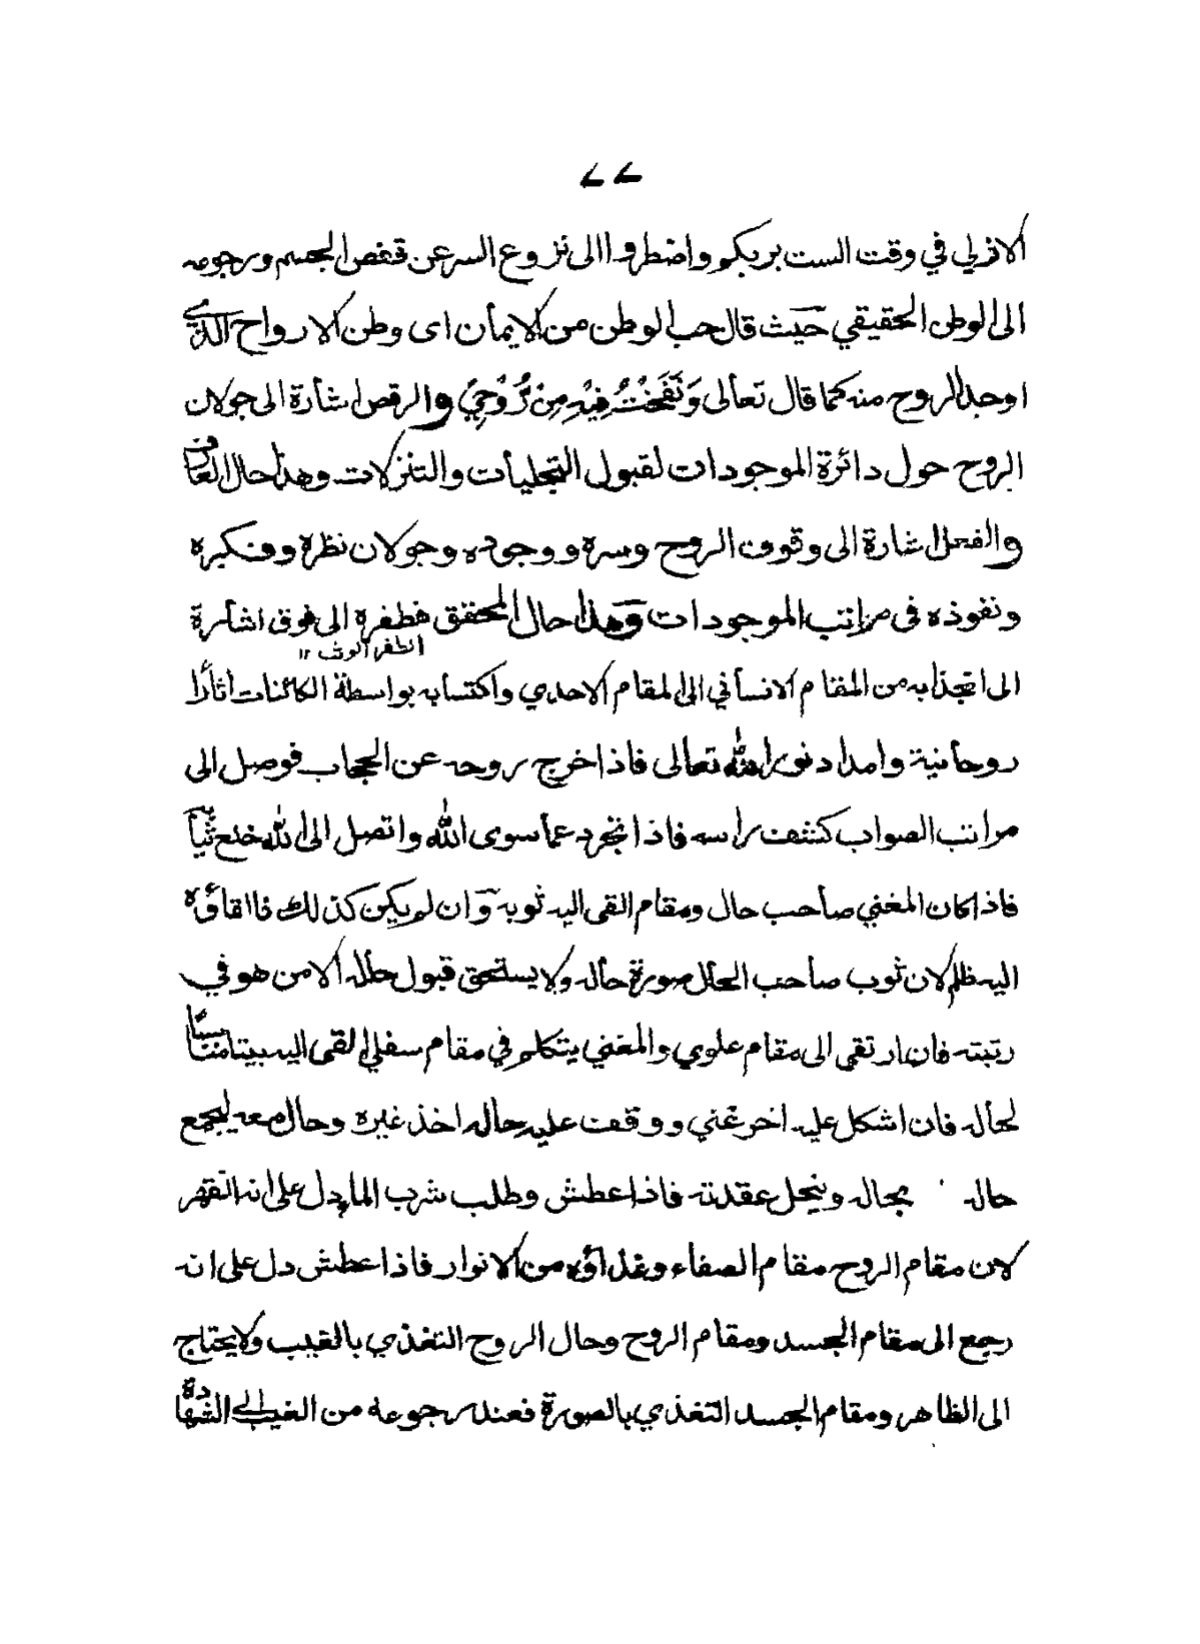 ٢٢
الازلي في وقت الست بربكم واضطروا الى نزوع السر عن قفص الجسم ورجوعه
الى الوطن الحقيقي حيث قال حب الوطن من الايمان اى وطن الارواح الذي
اوجد الروح منه كما قال تعالى وَنَفَخْتُ فِيْهِ مِنْ رُّوْحِيْ والرقص اشارة الى جولان
الروح حول دائرة الموجودات لقبول التجليات والتنزلات وهذا حال العارف
والفعل اشارة الى وقوف الروح وسره ووجوده وجولان نظره وفكره
ونفوذه فى مراتب الموجودات وهذا حال المحقق فطفره الى فوق اشارة
الطفر الوثب ١٢
الى انجذابه من المقام الانساني الى المقام الاحدي واكتسابه بواسطة الكائنات اثارًا
روحانية وامداد نور الله تعالى فاذا خرج روحه عن الحجاب فوصل الى
مراتب الصواب كشف راسه فاذا تجرد عما سوى الله واتصل الى الله خلع ثيابه
فاذا كان المغني صاحب حال ومقام القى اليه ثوبه وان لم يكن كذلك فالقاؤه
اليه ظلم لان ثوب صاحب الحال صورة حاله ولا يستحق قبول حاله الا من هو في
رتبته فان ارتقى الى مقام علوي والمغني يتكلم في مقام سفلي القى اليه بيتا مناسبًا
لحاله فان اشكل عليه اخر غني ووقف عليه حاله اخذ غيره وحال معه ليجمع
حاله بحاله وينحل عقدته فاذا عطش وطلب شرب الماء دل على انه انقهر
لان مقام الروح مقام الصفاء وغذاؤه من الانوار فاذا عطش دل على انه
رجع الى مقام الجسد ومقام الروح وحال الروح التغذي بالغيب ولا يحتاج
الى الظاهر ومقام الجسد التغذي بالصورة فعند رجوعه من الغيب الى الشهادة